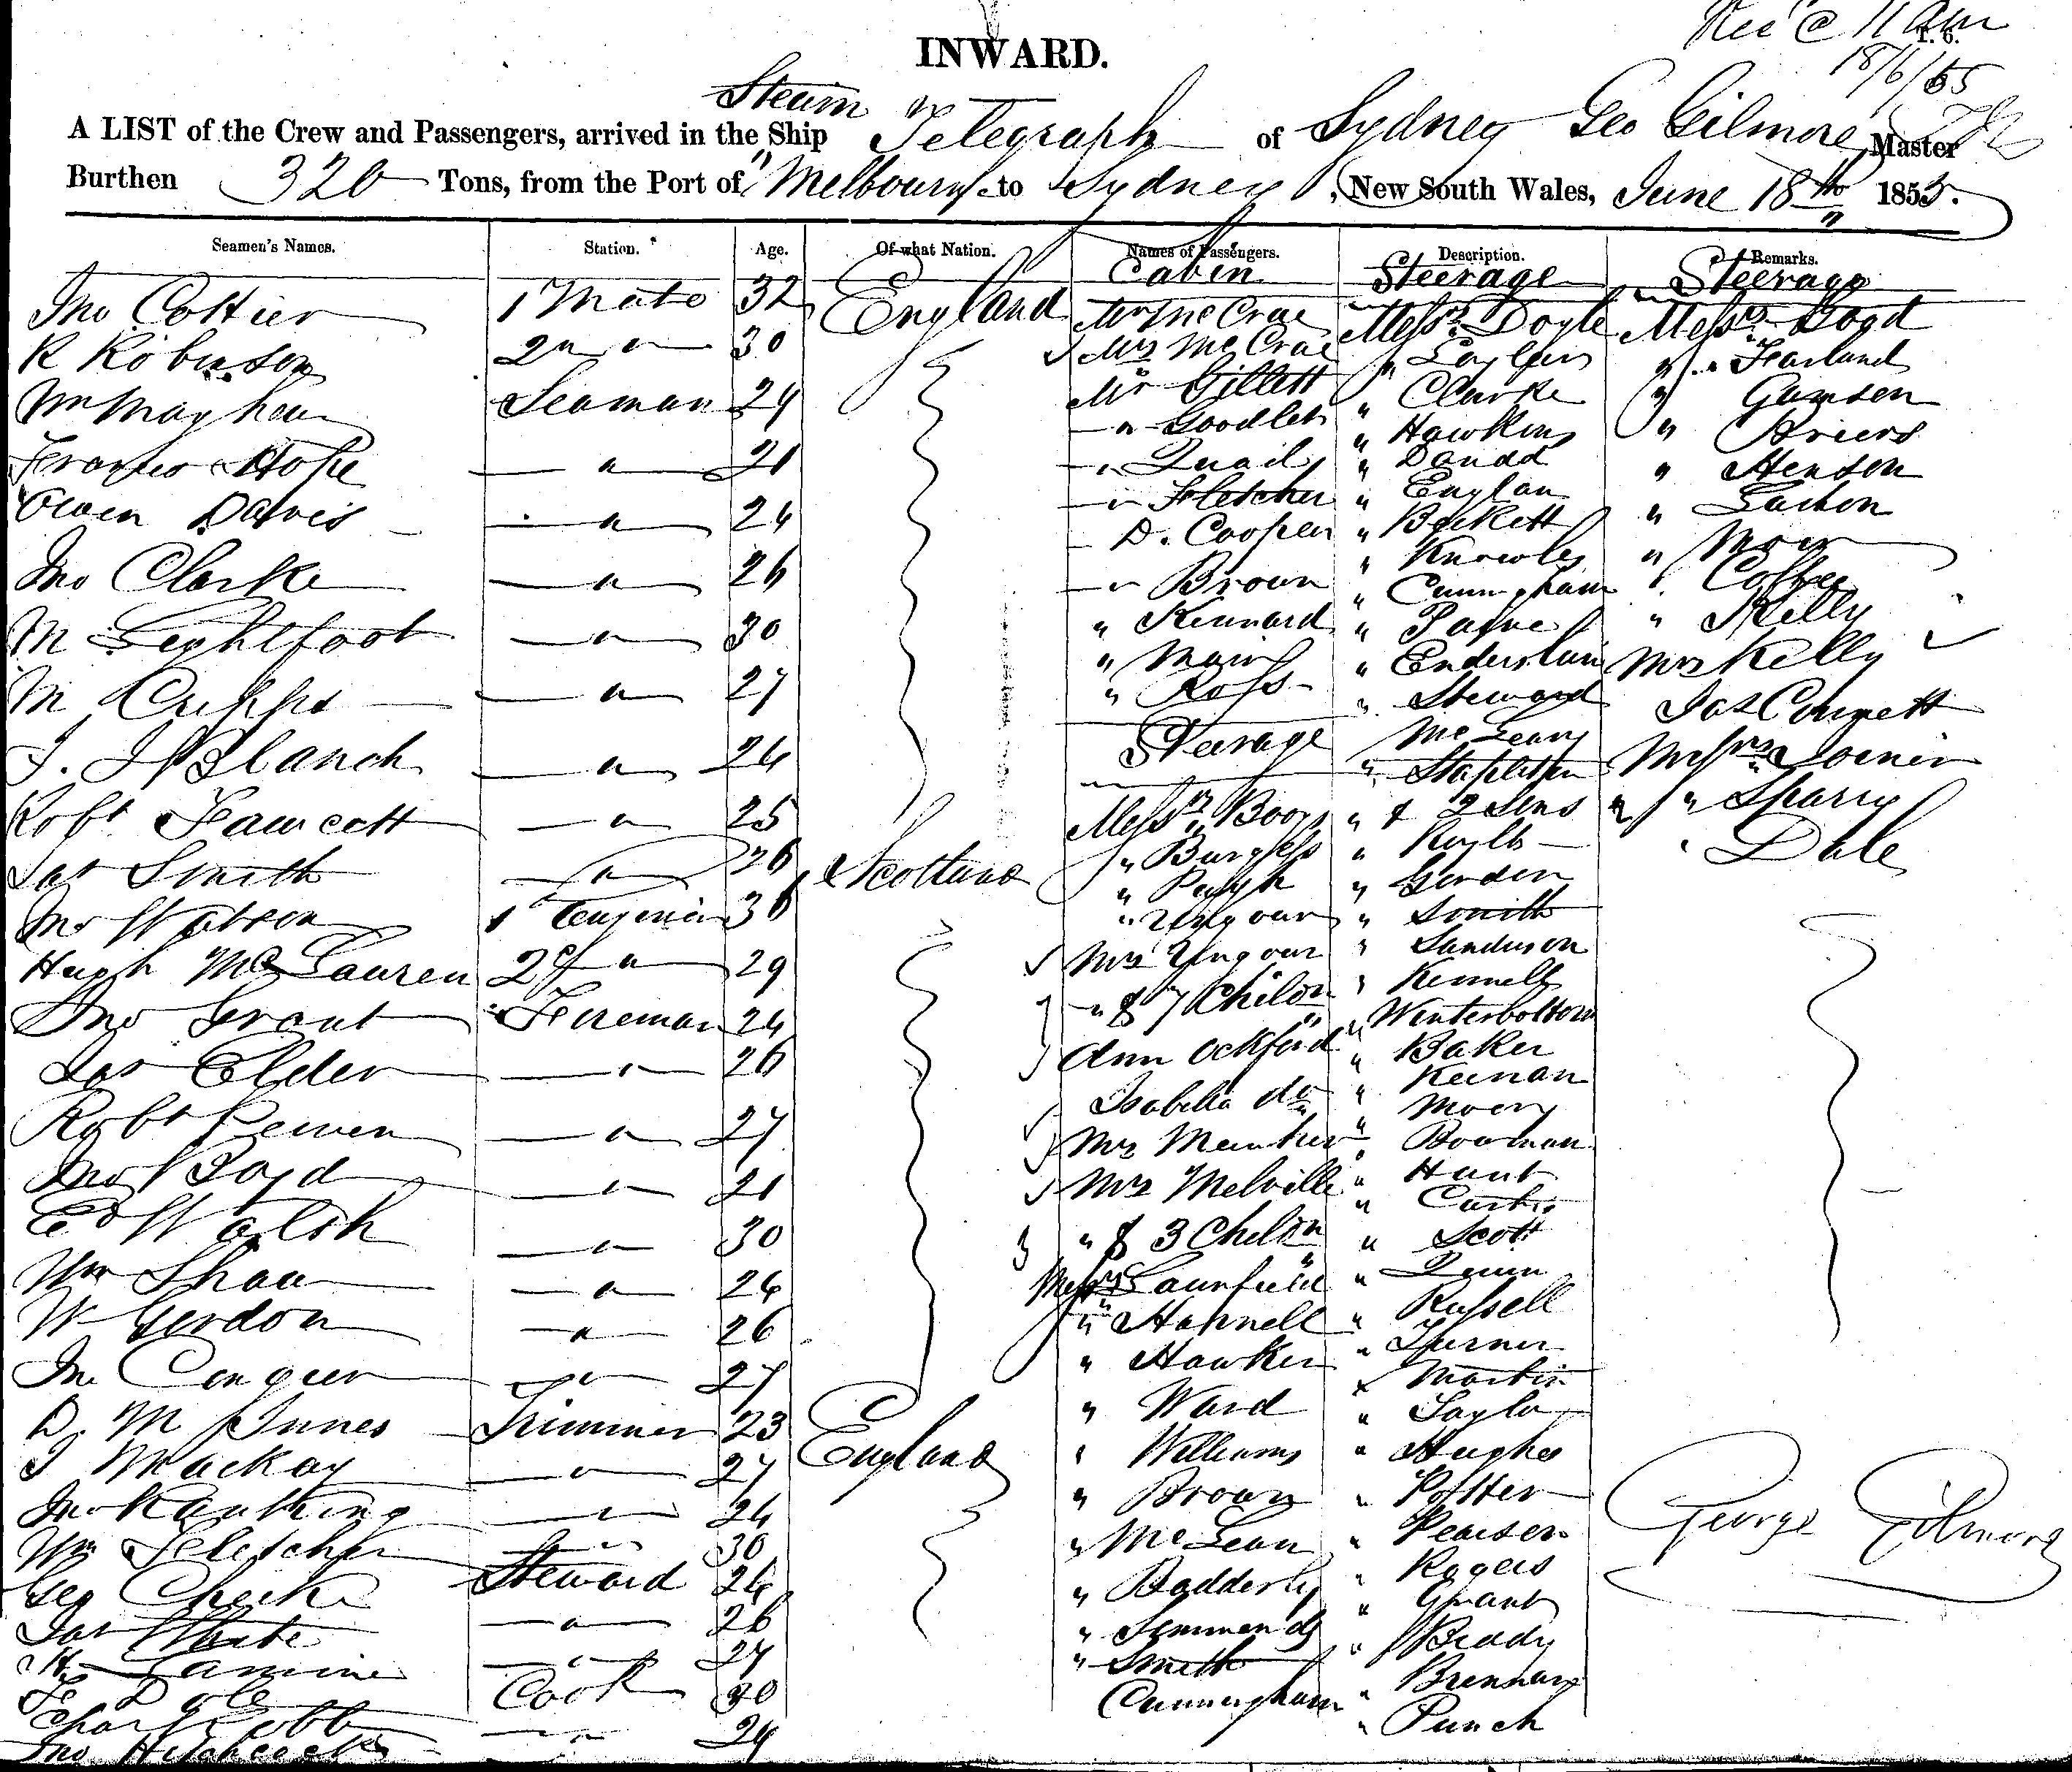 Rec @ 11 am
T. 6.
18/6/55
INWARD.
Steam
A LIST of the Crew and Passengers, arrived in the Ship Telegraph of Sydney Geo Gilmore Master
Burthen 320 Tons, from the Port of Melbourne to Sydney, New South Wales, June 18th 1855.
Seamen's Names. Station. Age. Of what Nation. Names of Passengers. Description. Remarks.
Cabin Steerage Steerage
Jno Cottier 1 Mate 32 England Mr McCrae Messrs Doyle Messrs Boyd
R Robinson 2nd " 30 Mrs McCrae " " Farland
Wm Mayhew Seaman 24 Mr Gillett " Clarke " Gamson
" Goodlet " Hawkins " Briers
Francis Hope " 21 " Quaid " Dondd " Henson
" Fletcher " Englan "
Owen Davis " 24 D. Cooper " Beckett " Moer
" Knowles " Coffee
Jno Clarke " 26 " Brown " Cunningham " Kelly
M Lightfoot " 30 " Kennard " Payne Mrs Kelly
" Main " Enderslain Jas Connett
M Cripps " 27 " Ross " Steward Messrs Joiner
J. J Blanch " 24 Steerage McLeary " " Sparry
" Stapleton " Dale
Robt Fawcett " 25 Messrs Boon " & 2 Sons
Jas Smith " 26 Scotland " Burgess "
" Pugh " Gordon
Jno Watson 1 Engineer 36 " Ungour " Smith
Hugh McLauren 2d " 29 Mrs Ungour " Sanderson
" & 7 Childn " Kennelly
Jno Grant Fireman 24 " Winterbottom
Jas Elder " 26 Ann Ockford " Baker
Isabella do " Keenan
Robt Lewen " 27 " Moery
Mrs " Bowman
Jno Boyd " 21 Mrs Melville " Hunt
" Curtis
Ed Walsh " 30 " & 3 Childn " Scott
Wm Shaw " 24 Messrs Launfield " Quinn
W Gordon " 26 " Hannell " Russell
" Turner
Jno Conquer " 27 " Hawker " Martin
D. M Innes Trimmer 23 England " Ward " Taylor
J Mackay " 27 " Williams " Hughes
Jno Rantking " 24 " Brown " Potter
Wm Fletcher " 30 " McLean " Pearson
Geo Cheek Steward 24 " Badderly " Rogers
" Grant
Jas White " 26 " Simmonds " Brady
H Jamine " 27 " Smith " Brennan
F Dole Cook 30 Cunningham " Punch
Chas Cobb " 24
Jno Hitchcock
George Gilmore